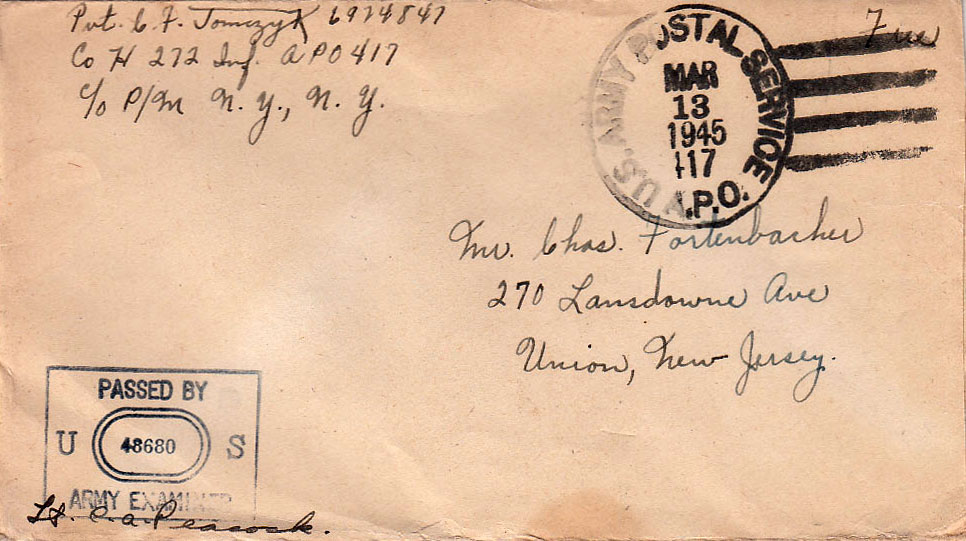 Pvt. C. F. Tomczyk 6974847
Co H 272 Inf. APO 417
c/o P/M N. Y., N. Y.
U.S. ARMY POSTAL SERVICE
MAR
13
1945
417
A.P.O.
Free
Mr. Chas. Fortenbacher
270 Lansdowne Ave
Union, New Jersey.
PASSED BY
U 48680 S
ARMY EXAMINER
Lt. C. A. Peacock.